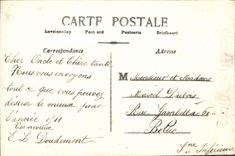 CARTE POSTALE
Levelezőlap Post card Postcarte Briefkaart
Correspondance Adresse
Cher Oncle et Chère tante
Nous vous envoyons
tout ce que vous pouvez
désirer de mieux pour
l'année 1911
E. L. Doudemont
M Monsieur et Madame
Marcel Dubois
Rue Gambetta
Bolbec
Sne Inférieure